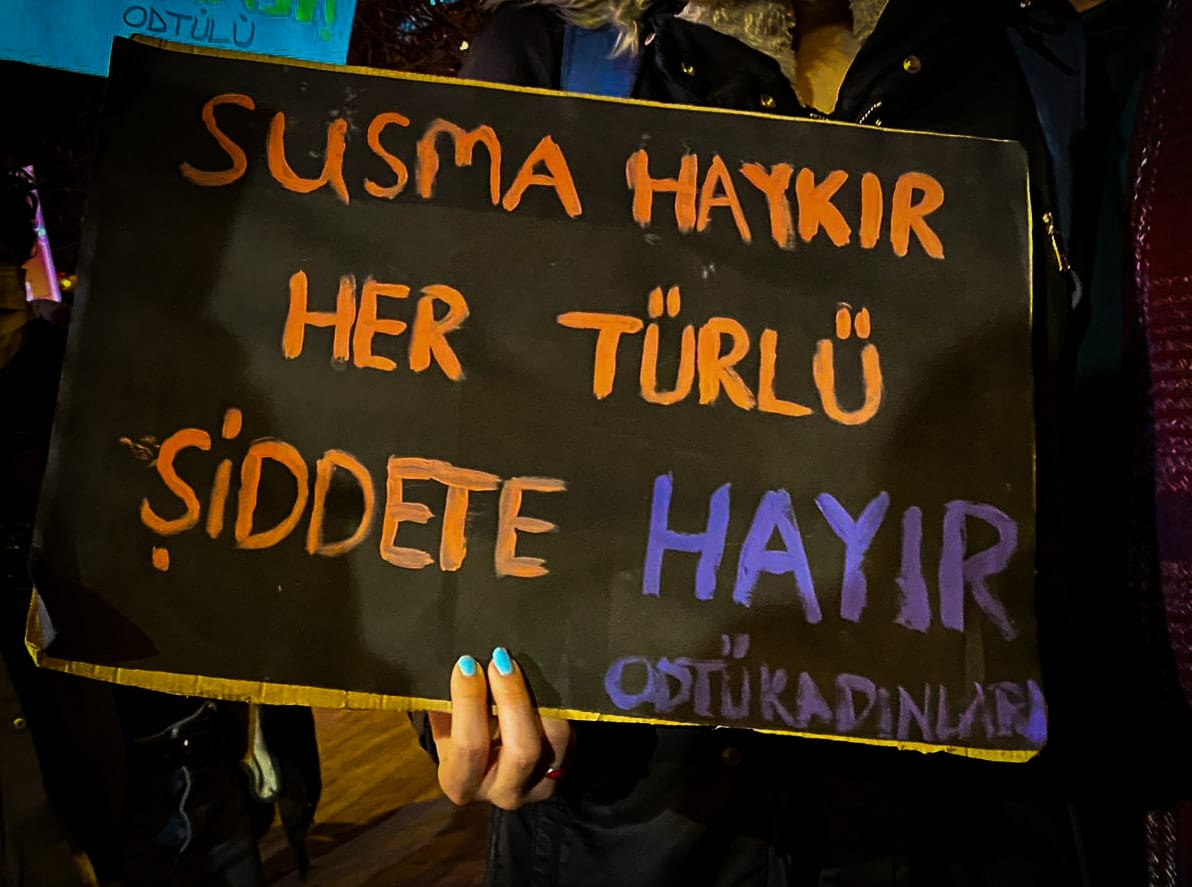 ODTÜLÜ
SUSMA HAYKIR
HER TÜRLÜ
ŞİDDETE HAYIR
ODTÜ KADINLARI